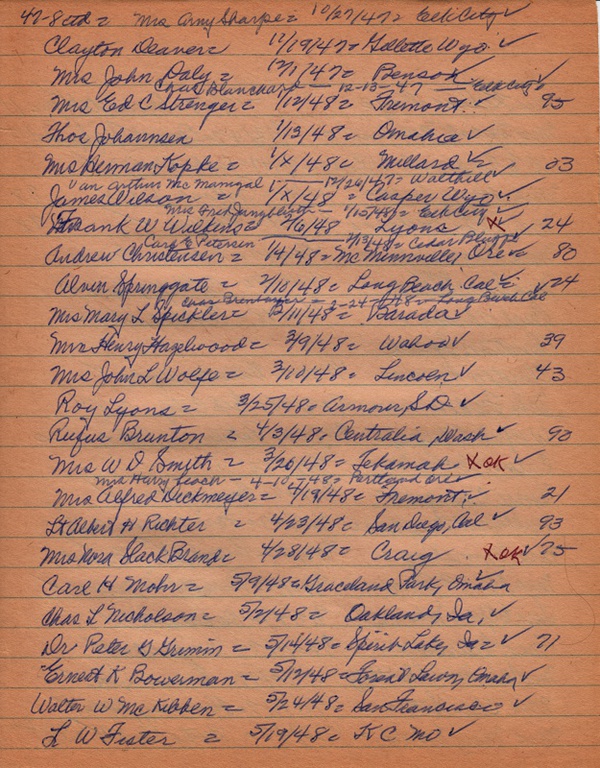 47-8 ctd = Mrs Amy Sharpe = 10/27/47 = Elk City ✓
Clayton Deaver = 12/19/47 = Gillette Wyo ✓
Mrs John Daly = 12/1/47 = Benson ✓
Chas Blanchard — 12-13-47 — Elk City
Mrs Ed C Strenger = 1/12/48 = Fremont ✓ 95
Thos Johannsen 1/13/48 = Omaha ✓
Mrs Herman Kopke = 1/x/48 = Millard ✓ 03
Arthur Mc Manigal 12/26/47 = Walthill ✓
James Wilson = 1/x/48 = Casper Wyo ✓
Mrs Fred Jungbluth — 1/15/48 = Elk City ✓
Frank W Wilkins = 2/6/48 Lyons x 24
Carl E Petersen 2/13/48 = Cedar Bluffs
Andrew Christensen = 1/4/48 = Mc Minnville, Ore = 80
Alvin Springgate = 2/10/48 = Long Beach, Cal = ✓ 24
Chas — 2-24-48 = Long Beach Cal
Mrs Mary L Speckler = 2/11/48 = Barada ✓
Mrs Henry Hazelwood = 3/9/48 = Wahoo ✓ 39
Mrs John L Wolfe = 3/10/48 = Lincoln ✓ 43
Roy Lyons = 3/25/48 = Armour, S.D. ✓
Rufus Brunton = 4/3/48 = Centralia, Wash ✓ 90
Mrs W D Smith = 3/20/48 = Tekamah XOK ✓
Mrs Harry — 4-10-48 = Portland Ore ✓
Mrs Alfred Dickmeyer = 4/19/48 = Fremont ✓ 21
Lt Albert H Richter = 4/23/48 = San Diego, Cal ✓ 93
Mrs Nora Slack Brand = 4/28/48 = Craig . XOK ✓ 75
Carl H Mohr = 5/9/48 = Graceland Park, Omaha ✓
Chas L Nicholson = 5/2/48 = Oakland, Ia, ✓
Dr Peter G Grimm = 5/14/48 = Spirit Lake, Ia = ✓ 71
Ernest K Bowerman = 5/12/48 = Forest Lawn, Omaha ✓
Walter W McKibben = 5/24/48 = San Francisco ✓
L W Fister = 5/19/48 = K C Mo ✓